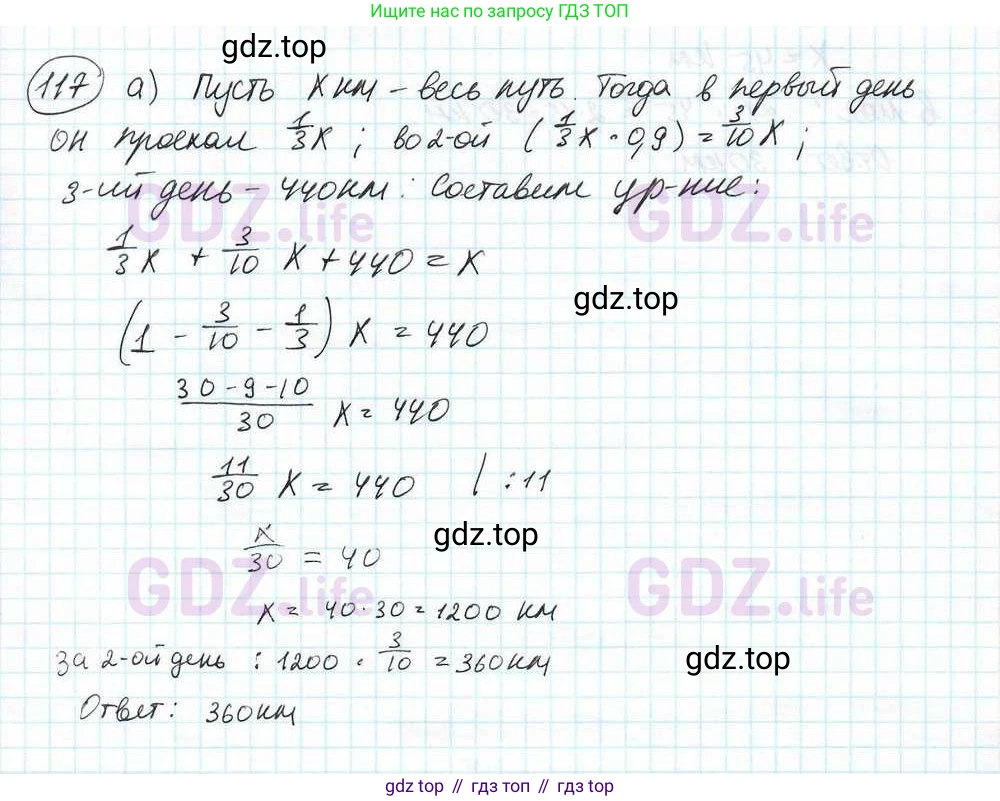 Ищите нас по запросу ГДЗ ТОП
gdz.top
117 а) Пусть X км – весь путь. Тогда в первый день
он проехал 1/3 X ; во 2-ой (1/3 X · 0,9) = 3/10 X ;
3-ий день – 440 км. Составим ур-ние:
GDZ.life GDZ.life
1/3 X + 3/10 X + 440 = X
gdz.top
(1 - 3/10 - 1/3) X = 440
30 - 9 - 10 / 30 X = 440
11/30 X = 440 | : 11
gdz.top
X/30 = 40
GDZ.life GDZ.life
X = 40 · 30 = 1200 км
за 2-ой день : 1200 · 3/10 = 360 км
gdz.top
Ответ: 360 км
gdz top // гдз топ // gdz.top // гдз.топ